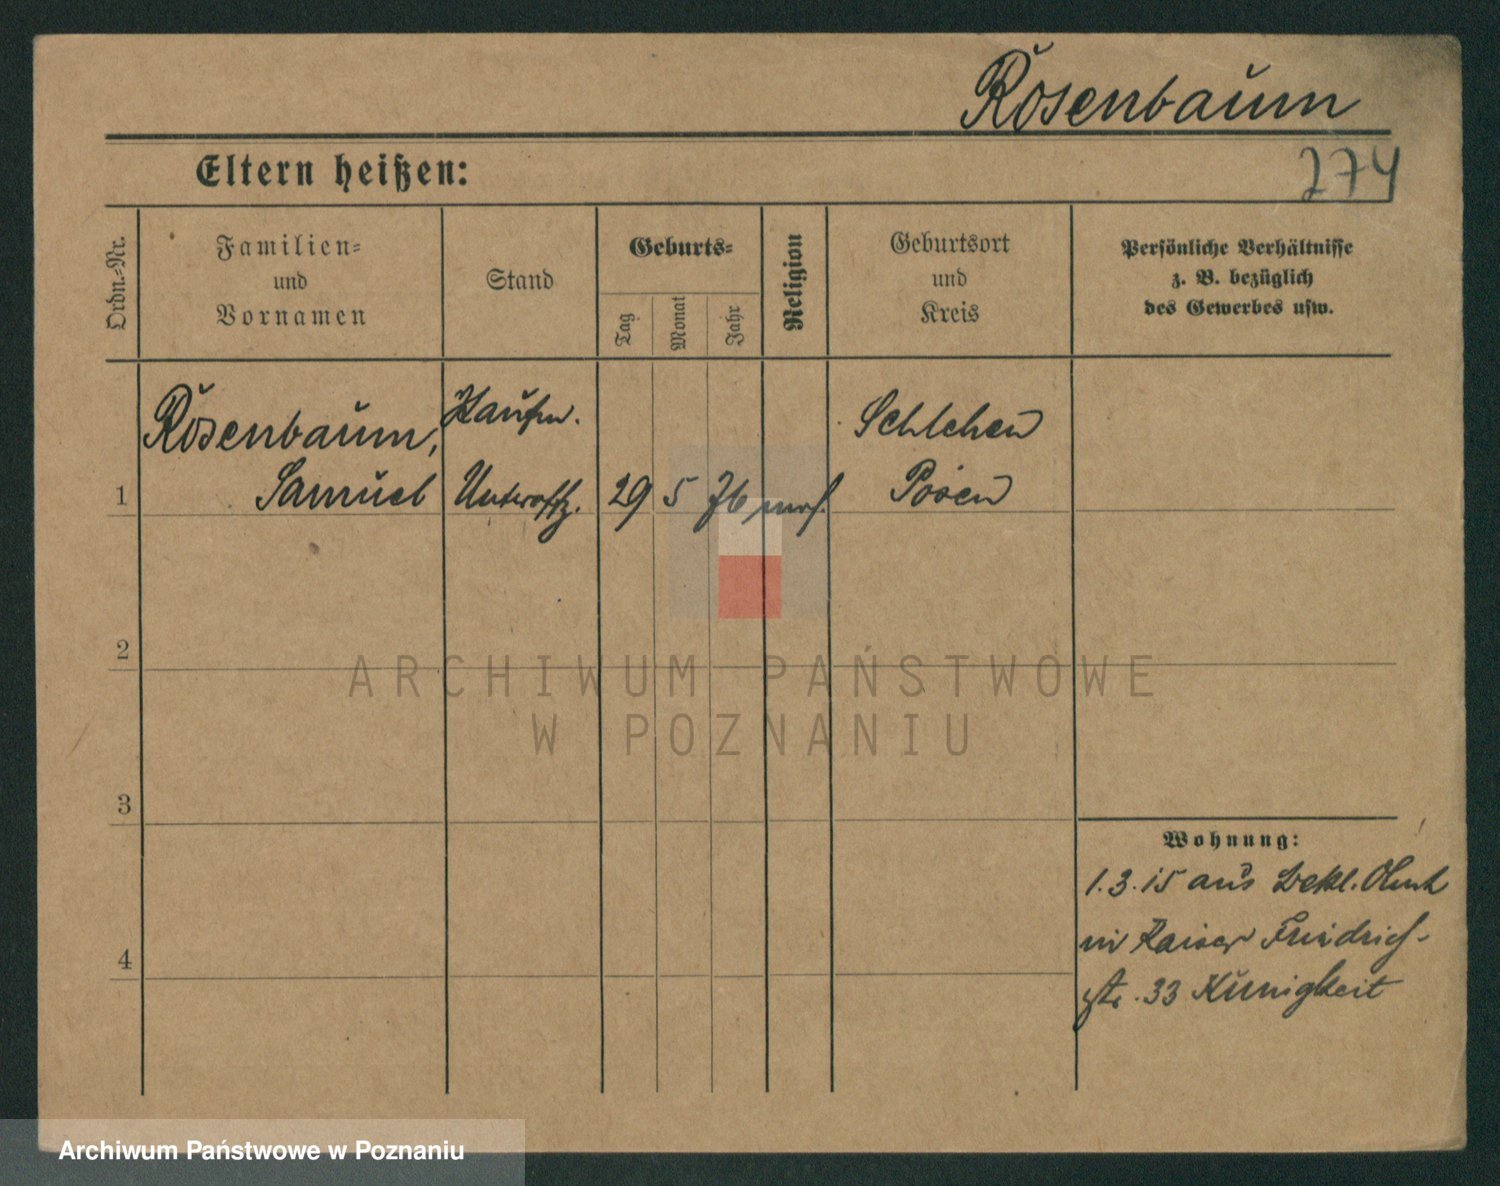 Rosenbaum
Eltern heißen:
274
Ordn.-Nr.
Familien-
und
Vornamen
Stand
Geburts-
Tag
Monat
Jahr
Religion
Geburtsort
und
Kreis
Persönliche Verhältnisse
z. B. bezüglich
des Gewerbes usw.
Rosenbaum,
Kaufm.
Schlehen
1
Samuel
Unteroffz.
29
5
76
mos.
Posen
2
ARCHIWUM PAŃSTWOWE
W POZNANIU
3
Wohnung:
1.3.15 aus
4
Kaiser Friedrich-
str. 33
Archiwum Państwowe w Poznaniu